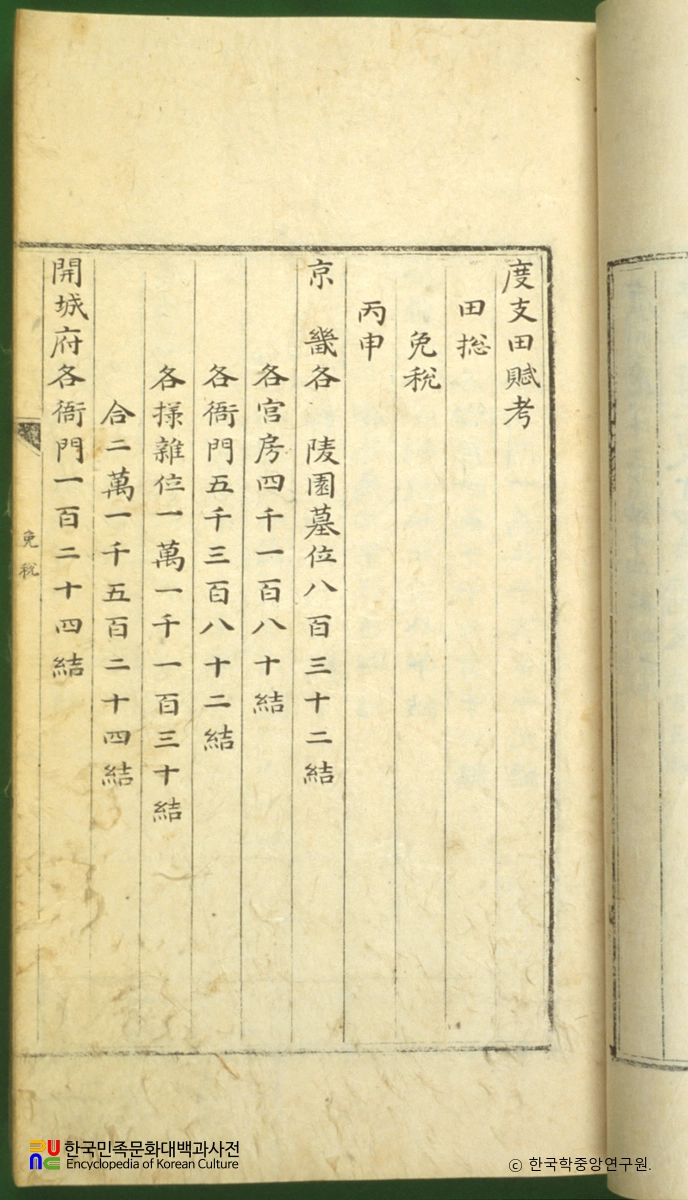 度支田賦考
田摠
免稅
丙申
京畿各 陵園墓位八百三十二結
各宮房四千一百八十結
各衙門五千三百八十二結
各樣雜位一萬一千一百三十結
合二萬一千五百二十四結
開城府各衙門一百二十四結
免稅
한국민족문화대백과사전
Encyclopedia of Korean Culture
© 한국학중앙연구원.